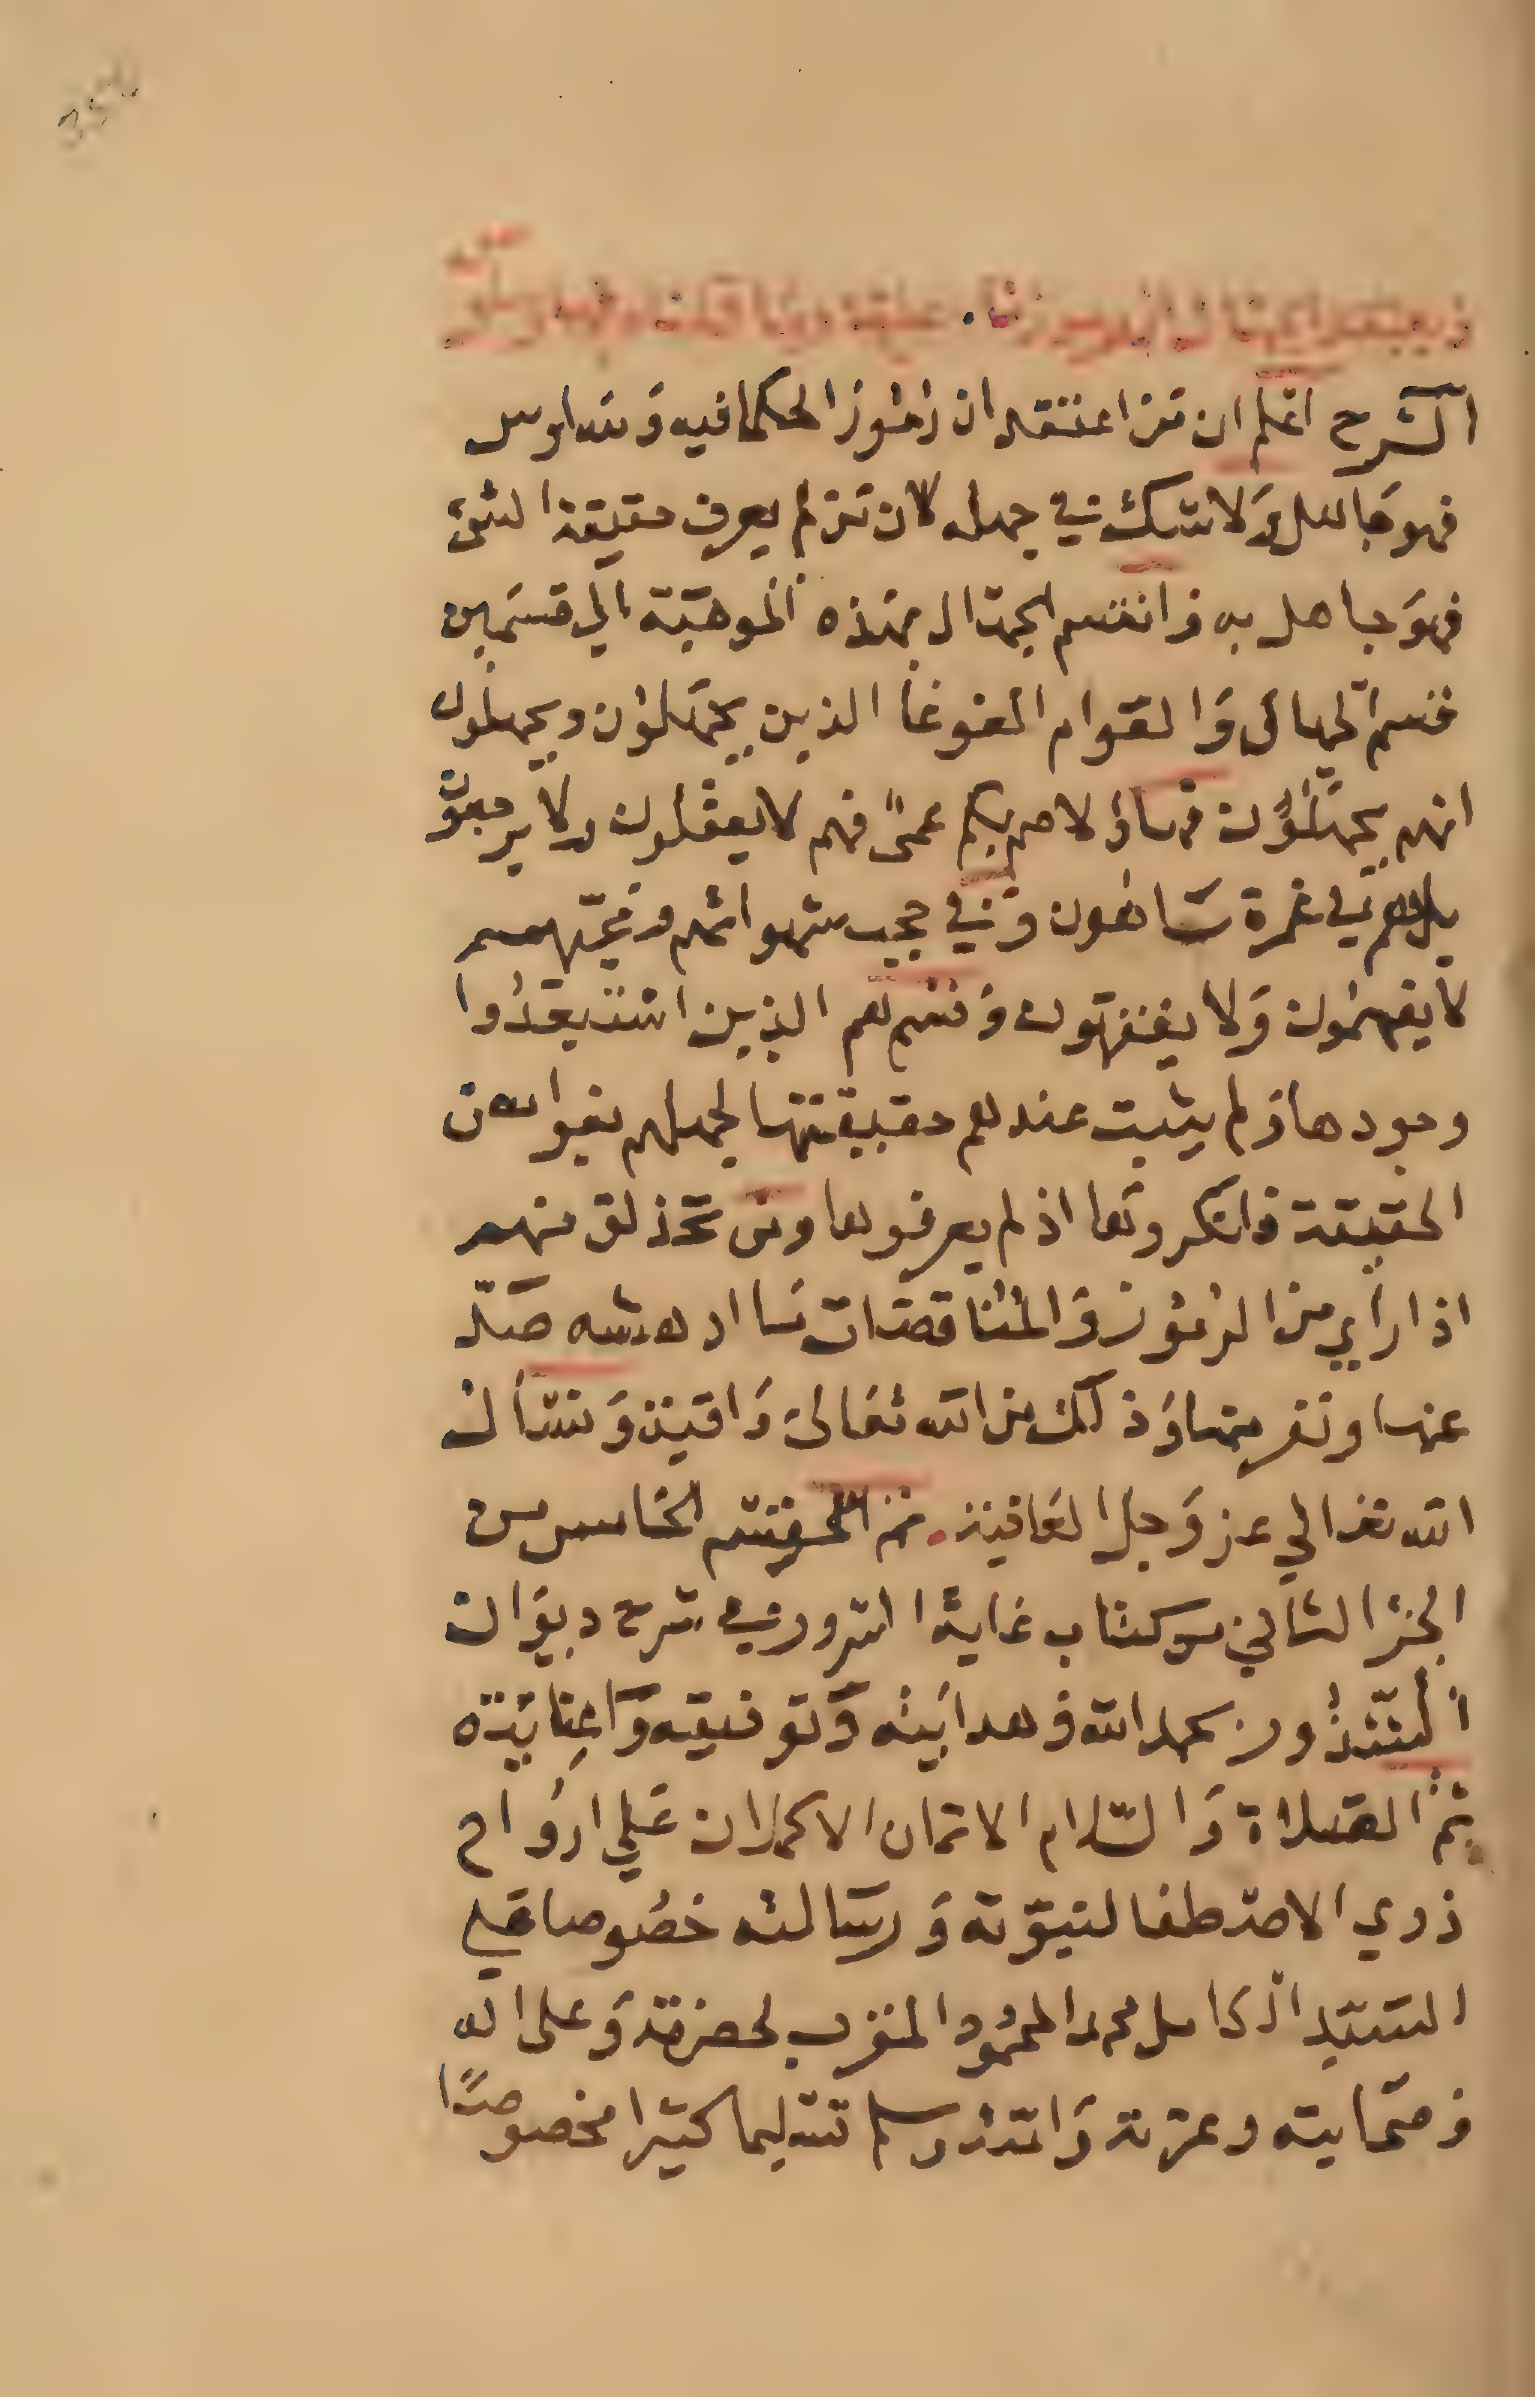 الشرح اعلم ان من اعتقد ان رموز الحكما فيه وساوس
فهو جاهل ولا شك في جهله لان من لم يعرف حقيقة الشئ
فهو جاهل به وانقسم الجهال بهذه الموهبة الي قسمين
قسم الجهال والعوام الغوغا الذين يجهلون ويجهلون
انهم يجهلون فهاؤلا صم بكم عمى فهم لا يعقلون ولا يرجعون
بل هم في غمرة ساهون وفي حجب شهواتهم وغيهم
لا يفهمون ولا يفقهون وقسم هم الذين استبعدوا
وجودها ولم يثبت عندهم حقيقتها لجهلهم بغوامض
الحقيقة فانكروها اذ لم يعرفوها ومن تحذلق منهم
اذا راي من الرموز والمتناقضات ما ادهشه صد
عنها ونفر منها وذلك من الله تعالى واقية ونسأل
الله تعالي عز وجل العافية. تم القسم الخامس من
الجزا الثاني من كتاب غاية السرور في شرح ديوان
الشذور بحمد الله وهدايته وتوفيقه واعنايته
ثم الصلاة والسلام الاتمان الاكملان علي ارواح
ذوي الاصطفا لنبوته ورسالته خصوصا علي
السيد الكامل محمد المحمود المقرب لحضرته وعلى اله
وصحابته وعترته وامته وسلم تسليما كثيرا مخصوصا